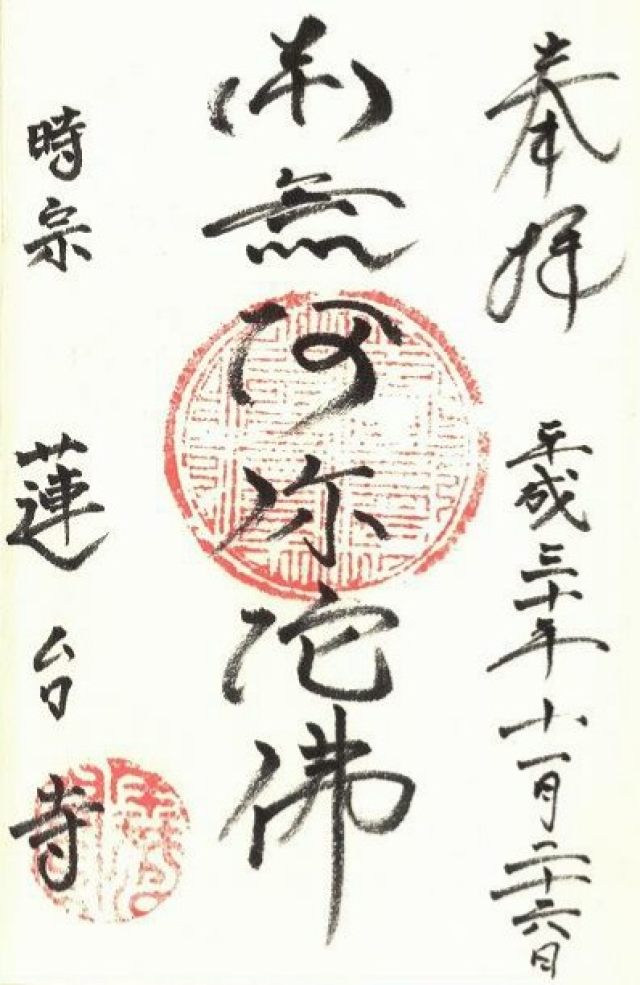 奉拝 平成三十年十一月二十六日
南無阿弥陀佛
時宗 蓮台寺